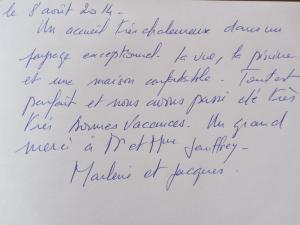 le 8 août 2014.
Un accueil très chaleureux dans un
paysage exceptionnel. La vue, la piscine
et une maison confortable. Tout est
parfait et nous avons passé de très
très bonnes vacances. Un grand
merci à Mr et Mme
Marlène et Jacques.